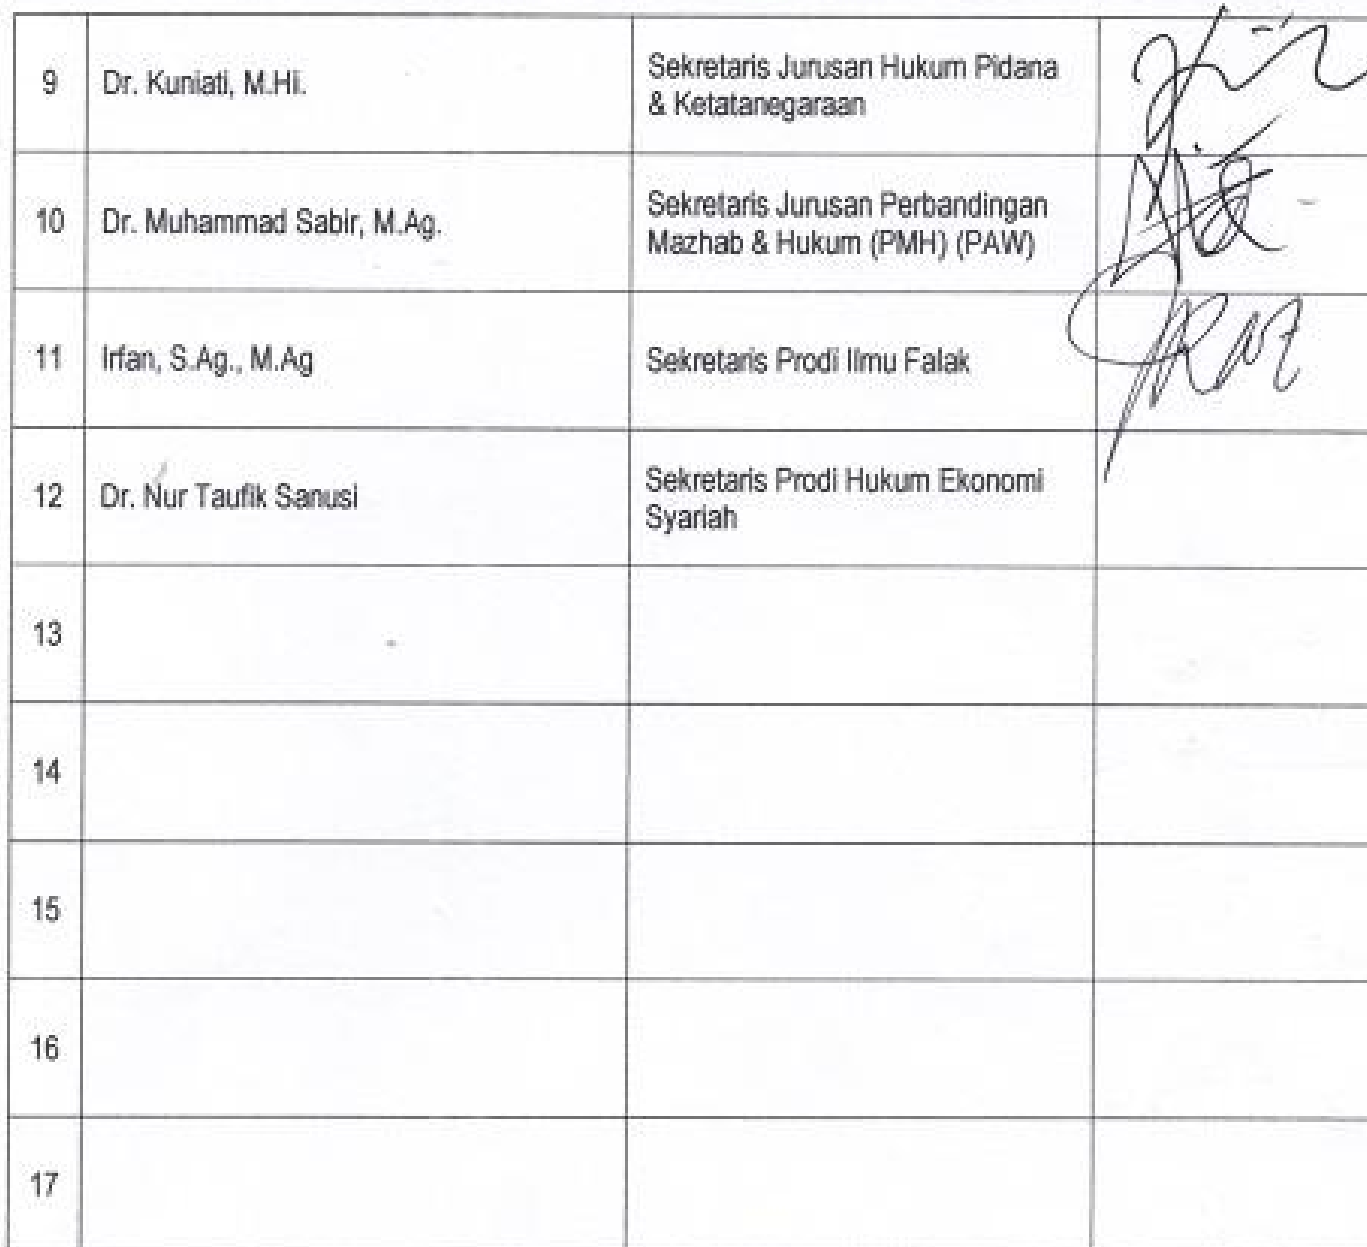 9 Dr. Kuniati, M.Hi. Sekretaris Jurusan Hukum Pidana
& Ketatanegaraan
10 Dr. Muhammad Sabir, M.Ag. Sekretaris Jurusan Perbandingan
Mazhab & Hukum (PMH) (PAW)
11 Irfan, S.Ag., M.Ag Sekretaris Prodi Ilmu Falak
12 Dr. Nur Taufik Sanusi Sekretaris Prodi Hukum Ekonomi
Syariah
13
14
15
16
17